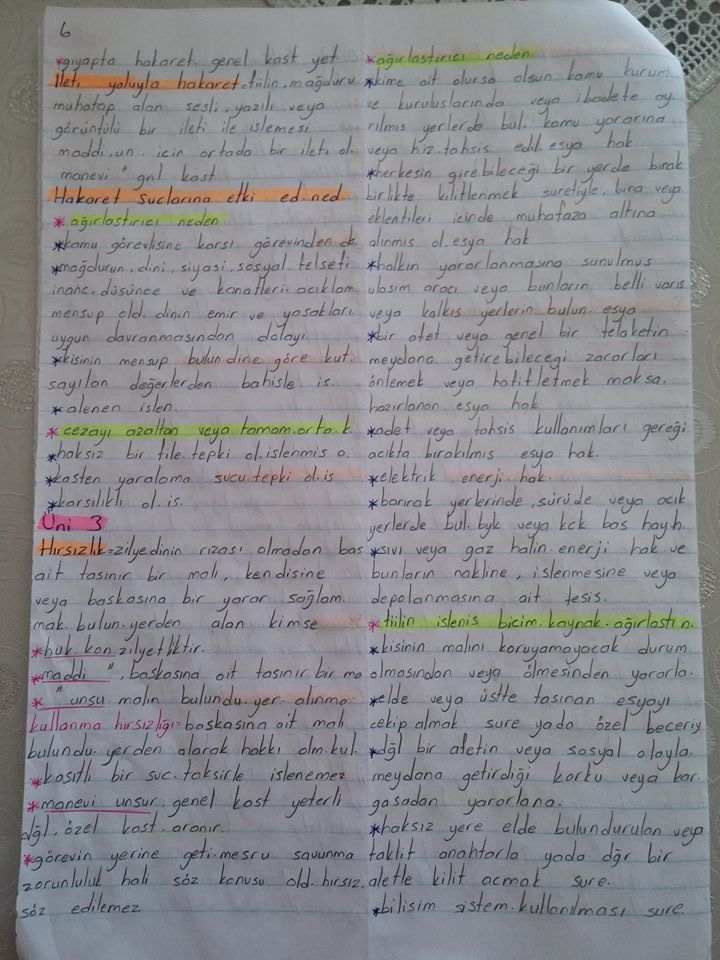 6
*gıyapta hakaret. genel kast yet.
İleti yoluyla hakaret=fiilin, mağduru
muhatap alan sesli, yazılı veya
görüntülü bir ileti ile islemesi
maddi.un. icin ortada bir ileti ol.
manevi " gnl kast
Hakaret suclarına etki ed.ned
*ağırlastırıcı neden
*kamu görevlisine karsı görevinden dl.
*mağdurun, dini, siyasi, sosyal felsefi
inanc, düsünce ve kanatleri acıklam
mensup old. dinin emir ve yasakları
uygun davranmasından dolayı
*kisinin mensup bulun dine göre kut.
sayılan değerlerden bahisle is.
*alenen islen.
*cezayı azaltan veya tamam.orta.k.
*haksiz bir file. tepki ol.islenmis o.
*kasten yaralama sucu.tepki ol.is
*karsılıklı ol.is.
Üni 3
Hırsızlık=zilyedinin rızası olmadan bas
ait tasınır bir malı, kendisine
veya baskasına bir yarar sağlam.
mak bulun.yerden alan kimse
*huk.kon.zilyetliktir.
*maddi ". baskasına ait tasınır bir ma
* " unsu malın bulundu.yer.alınma
kullanma hırsızlığı=baskasına ait malı
bulundu.yerden alarak hakkı olm.kul.
*kasıtlı bir suc.taksirle islenemez
*manevi unsur. genel kast yeterli
dğl. özel kast aranır.
*görevin yerine geti.mesru savunma
zorunluluk hali söz konusu old.hırsız.
söz edilemez
*ağırlastırıcı neden
*kime ait olursa olsun kamu kurum
ve kuruluslarında veya ibadete ay
rılmıs yerlerde bul. kamu yararına
veya hiz.tahsis edil esya hak
*herkesin girebileceği bir yerde bırak
birlikte kilitlenmek suretiyle, bina veya
eklentileri icinde muhafaza altına
alınmıs ol.esya hak
*halkın yararlanmasına sunulmus
ulasım aracı veya bunların belli varıs
veya kalkıs yerlerin bulun. esya
*bir afet veya genel bir felaketin
meydana getirebileceği zararları
önlemek veya hafifletmek maksa.
hazırlanan esya hak
*adet veya tahsis kullanımları gereği
acıkta bırakılmıs esya hak.
*elektrik enerji.hak.
*barınak yerlerinde, sürüde veya acık
yerlerde bul. byk veya kck bas hayh.
*sıvı veya gaz halin.enerji hak ve
bunların nakline, islenmesine veya
depolanmasına ait tesis.
*fiilin islenis bicim.kaynak.ağırlastı n.
*kisinin malını koruyamayacak durum
olmasından veya ölmesinden yararla.
*elde veya üstte tasınan esyayı
cekip almak sure yada özel beceriy
*dğl bir afetin veya sosyal olayla.
meydana getirdiği korku veya kar.
gasadan yararlana.
*haksız yere elde bulundurulan veya
taklit anahtarla yada dğr bir
aletle kilit acmak sure.
*bilisim sistem.kullanılması sure.